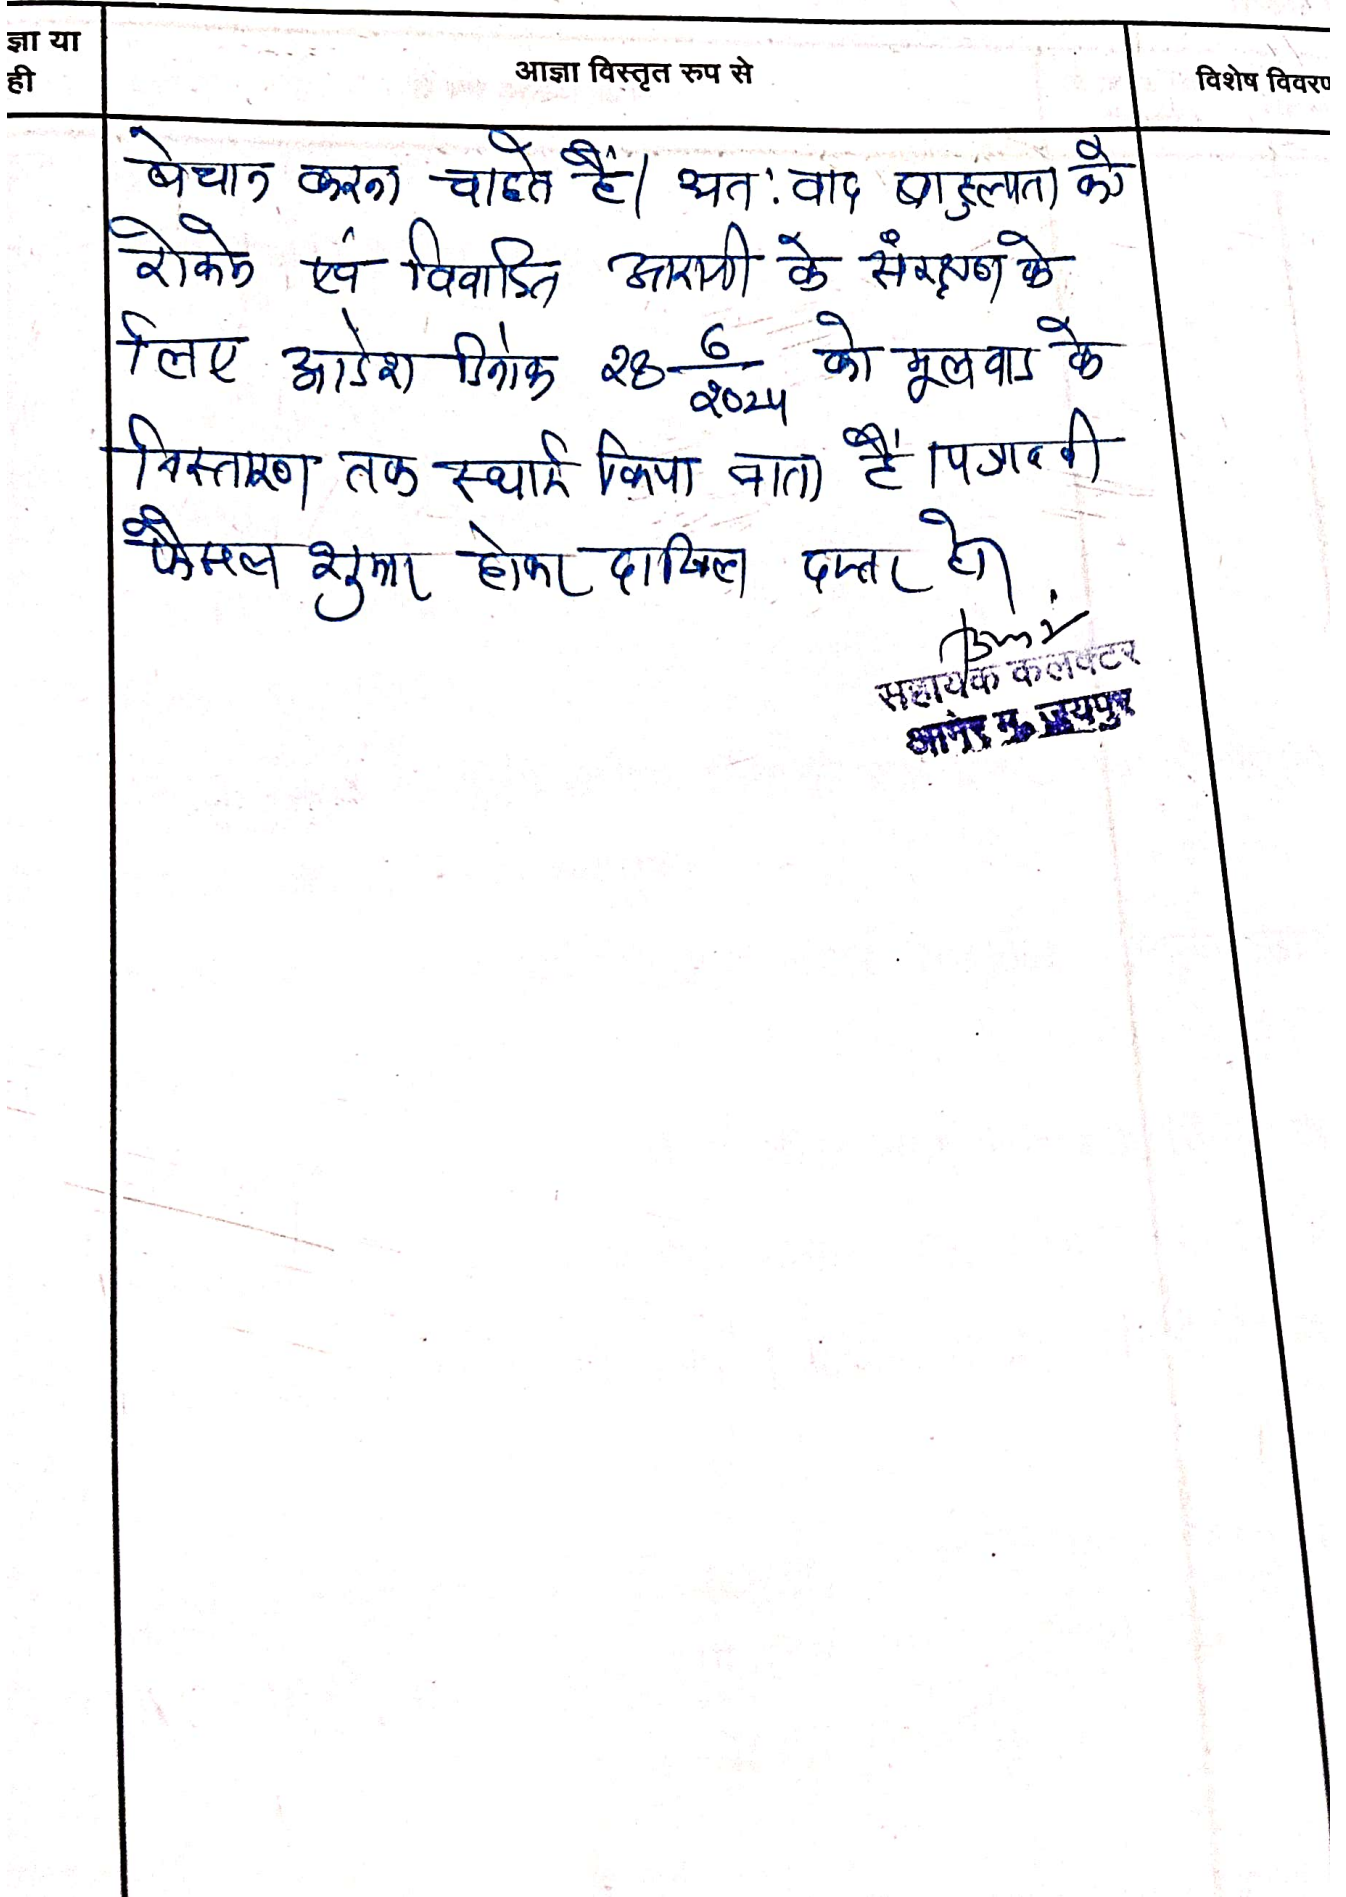 ज्ञा या
ही
आज्ञा विस्तृत रुप से
विशेष विवरण
बेचान करना चाहते हैं। अतः वाद बाहुल्यता को
रोकने एवं विवादित आराजी के संरक्षण के
लिए आदेश दिनांक 28-6/2024 को मूलवाद के
निस्तारण तक स्थाई किया जाता है। पत्रावली
फैसल शुमार होकर दाखिल दफ्तर हो।
सहायक कलक्टर
आमेर मु. जयपुर